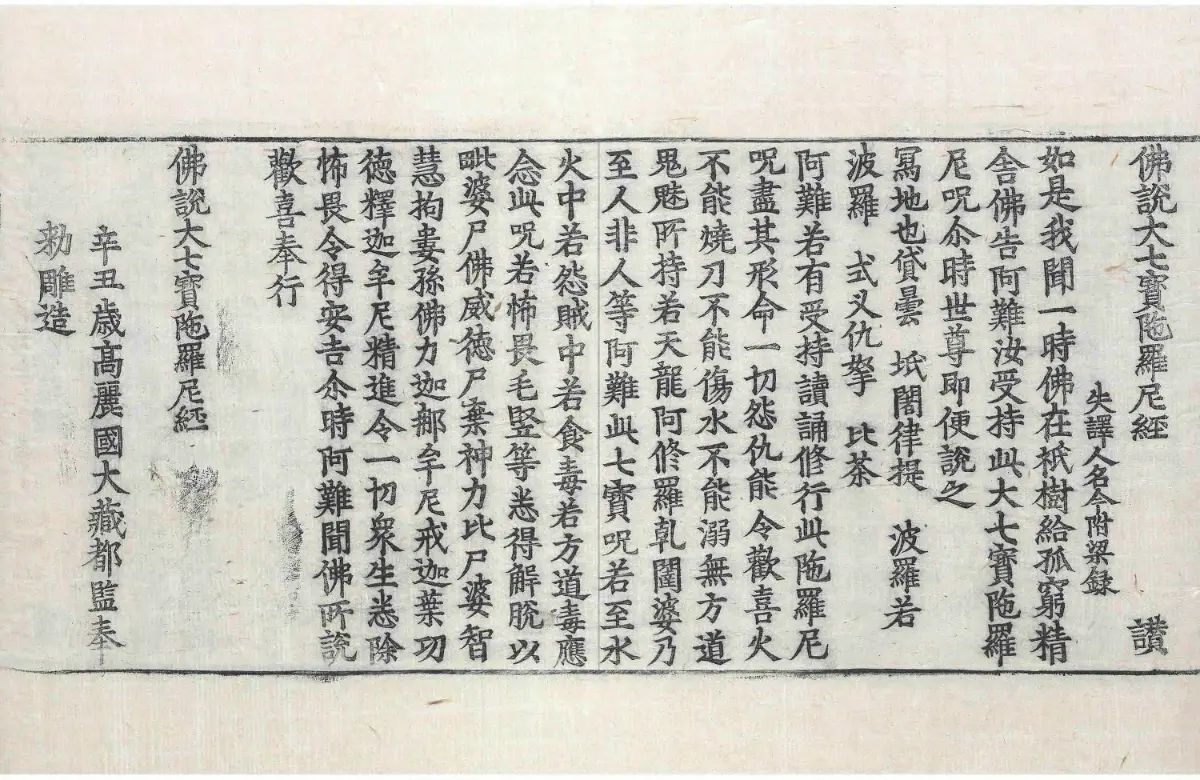 佛說大七寶陁羅尼經 讃
失譯人名今附梁録
如是我聞一時佛在祇樹給孤窮精
舍佛告阿難汝受持此大七寶陁羅
尼呪尒時世尊即便說之
冩地也貸曇 坻闍律提 波羅若
波羅 式叉仇拏 比茶
阿難若有受持讀誦修行此陁羅尼
呪盡其形命一切怨仇能令歡喜火
不能燒刀不能傷水不能溺無方道
鬼魅所持若天龍阿修羅乹闥婆乃
至人非人等阿難此七寶呪若至水
火中若怨賊中若食毒若方道毒應
念此呪若怖畏毛竪等悉得解脫以
毗婆尸佛威德尸棄神力比尸婆智
慧拘婁孫佛力迦郍牟尼戒迦葉功
德釋迦牟尼精進令一切衆生悉除
怖畏令得安吉尒時阿難聞佛所說
歡喜奉行
佛說大七寶陁羅尼經
辛丑歲高麗國大藏都監奉
勑雕造